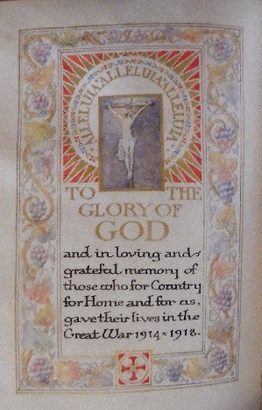 ALLELUIA ALLELUIA ALLELUIA
TO THE
GLORY OF
GOD
and in loving and
grateful memory of
those who for Country
for Home and for us,
gave their lives in the
Great War 1914 - 1918.